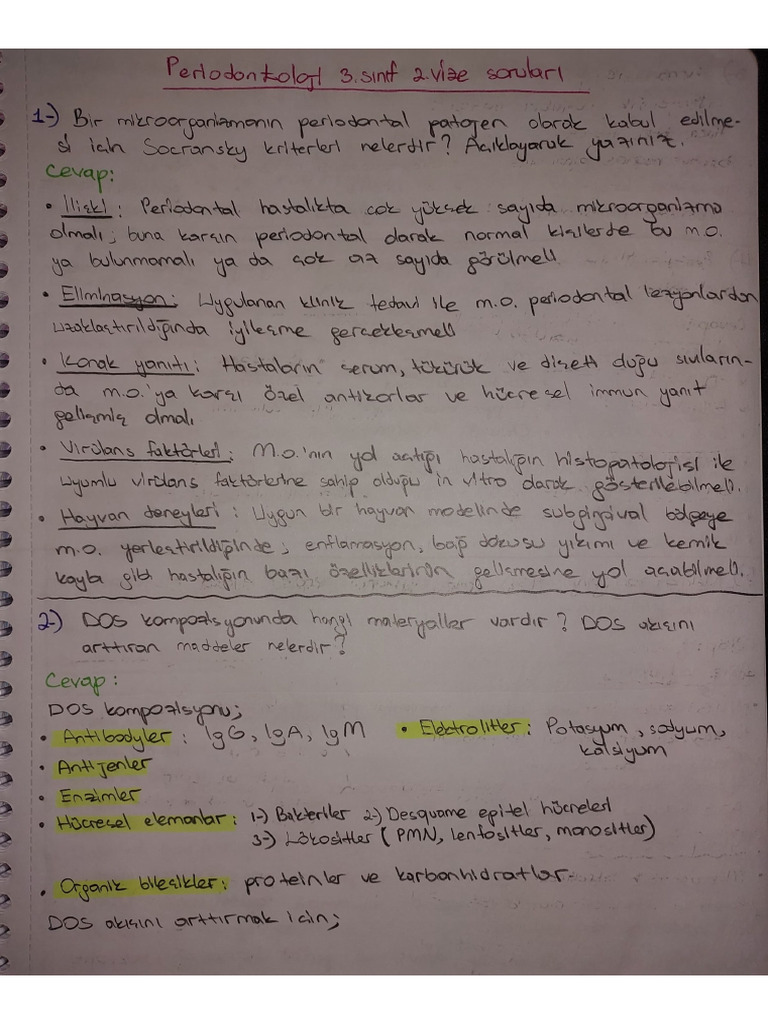 Periodontoloji 3.sınıf 2.vize soruları
1-) Bir mikroorganizmanın periodontal patogen olarak kabul edilme-
si için Socransky kriterleri nelerdir? Açıklayarak yazınız.
Cevap:
• İlişki : Periodontal hastalıkta çok yüksek sayıda mikroorganizma
olmalı; buna karşın periodontal olarak normal kişilerde bu m.o.
ya bulunmamalı ya da çok az sayıda görülmeli.
• Eliminasyon: Uygulanan klinik tedavi ile m.o. periodontal lezyonlardan
uzaklaştırıldığında iyileşme gerçekleşmeli
• Konak yanıtı : Hastaların serum, tükürük ve dişeti oluğu sıvıların-
da m.o.'ya karşı özel antikorlar ve hücresel immun yanıt
gelişmiş olmalı.
• Virülans faktörleri : M.o.'nın yol açtığı hastalığın histopatolojisi ile
uyumlu virülans faktörlerine sahip olduğu in vitro olarak gösterilebilmeli.
• Hayvan deneyleri : Uygun bir hayvan modelinde subgingival bölgeye
m.o. yerleştirildiğinde; enflamasyon, bağ dokusu yıkımı ve kemik
kaybı gibi hastalığın bazı özelliklerinin gelişmesine yol açabilmeli.
2-) DOS kompozisyonunda hangi materyaller vardır? DOS akışını
arttıran maddeler nelerdir?
Cevap :
DOS kompozisyonu;
• Antibodyler : IgG, IgA, IgM
• Elektrolitler : Potasyum, sodyum,
kalsiyum
• Antijenler
• Enzimler
• Hücresel elemanlar : 1-) Bakteriler 2-) Desquame epitel hücreleri
3-) Lökositler (PMN, lenfositler, monositler)
• Organik bileşikler : proteinler ve karbonhidratlar.
DOS akışını arttırmak için;